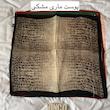 پوست ماری مشکی